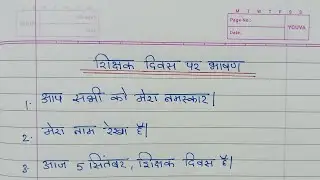 M T W T F S S
Page No.:
Date:
YOUVA
शिक्षक दिवस पर भाषण
1. आप सभी को मेरा नमस्कार|
2. मेरा नाम रेखा है|
3. आज 5 सितंबर, शिक्षक दिवस है|